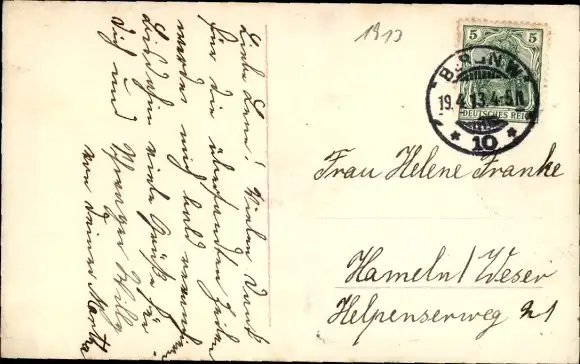 Liebe Lene! Vielen Dank
für die übersandten Zeilen
werde mich bald
Dich viele Grüße für
Dich und Willy
von Deiner Martha
1913
5 5
DEUTSCHES REICH
19.4.13.4-5N.
* 10 *
Frau Helene Franke
Hameln / Weser
Helpenserweg 21